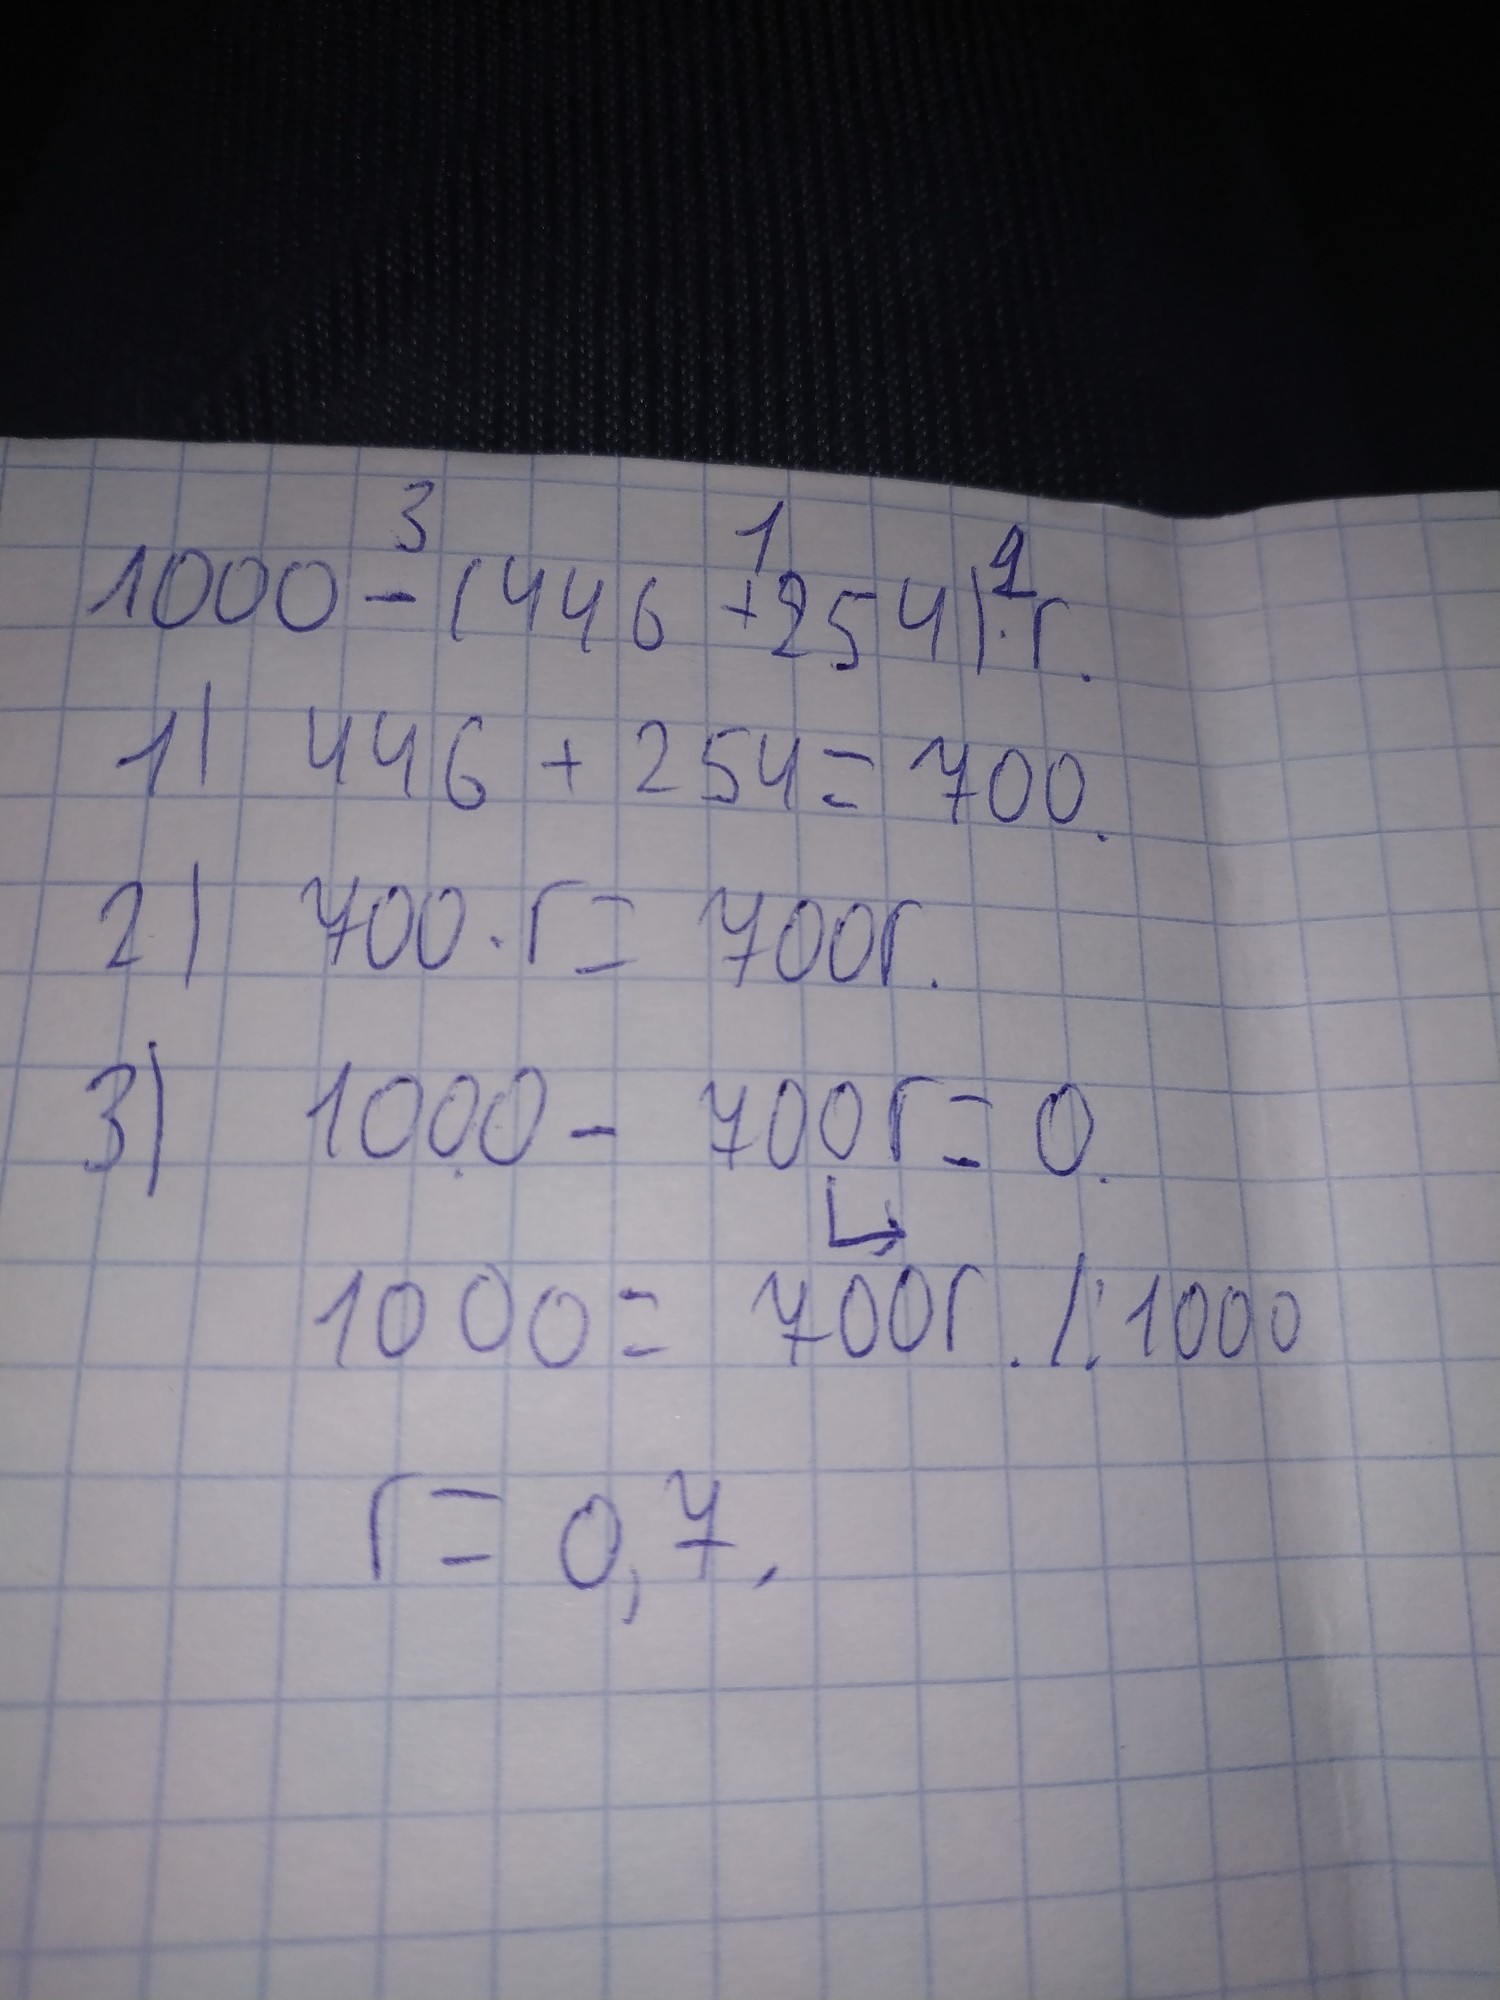 3 1 2
1000 - (446 + 254) · r.
1) 446 + 254 = 700.
2) 700 · r = 700r.
3) 1000 - 700r = 0.
1000 = 700r. /:1000
r = 0,7.